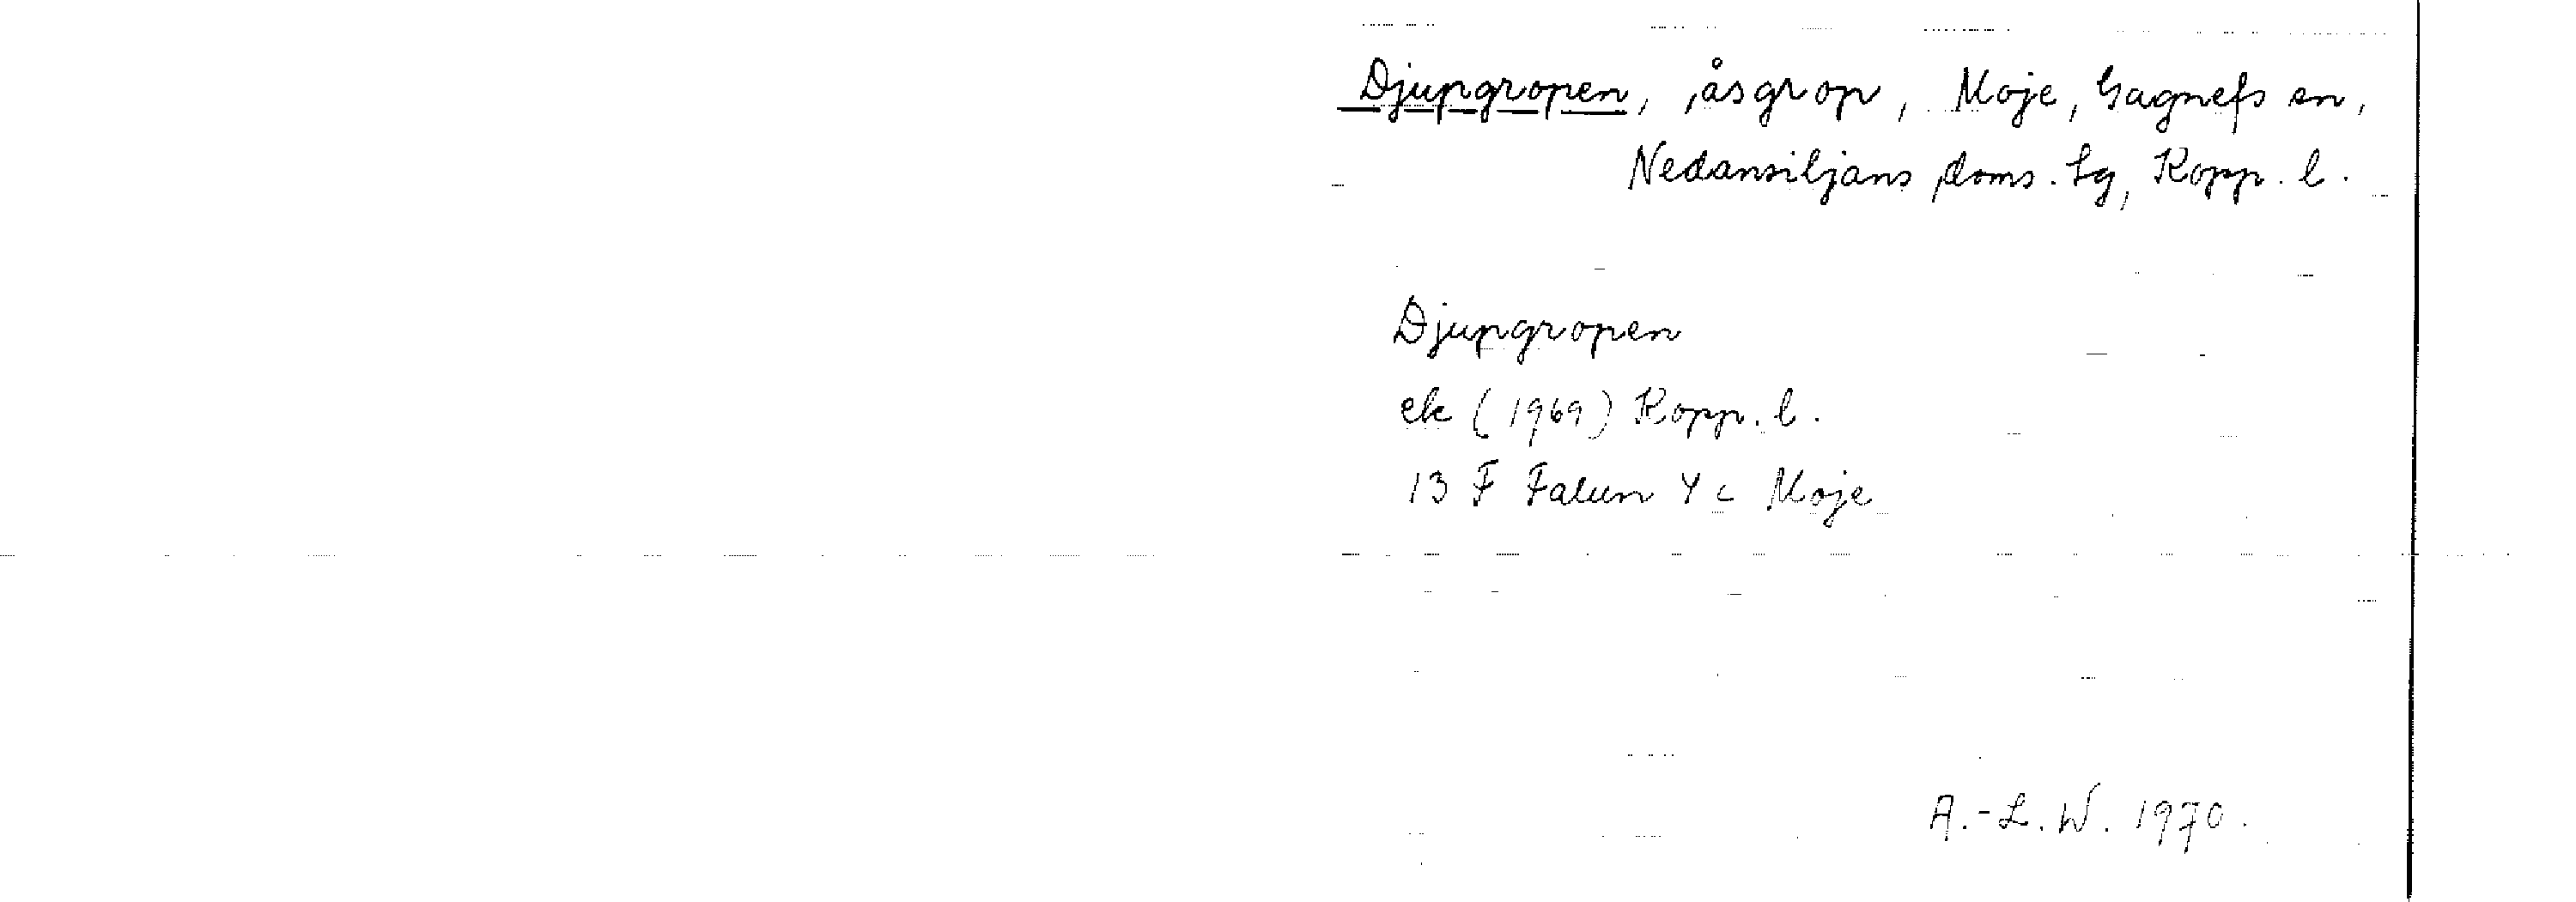 Djupgropen, åsgrop, Moje, Gagnefs sn,
Nedansiljans doms. tg, Kopp. l.
Djupgropen
ek (1969) Kopp. l.
13 F Falun 4 c Moje
A.-L. W. 1970.